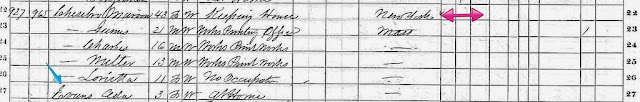 22 927 965 Cheselro Mariam 43 F W Keeping House New York 22
— James 21 M W Works Printing Office Mass 23
— Charles 16 M W Works Print Works — 24
— Walter 13 M W Works Print Works — 25
— Loretta 11 F W No Occupation — 26
27 Evans Ada 3 F W At Home — 27